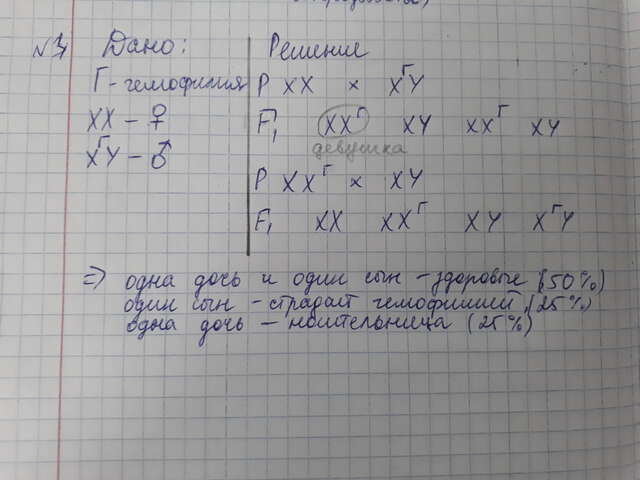 №3 Дано: Решение
Г - гемофилия P XX × XᴦY
XX - ♀ F₁ XXᴦ XY XXᴦ XY
XᴦY - ♂ девушка
P XXᴦ × XY
F₁ XX XXᴦ XY XᴦY
=> одна дочь и один сын - здоровые (50%)
один сын - страдает гемофилией (25%)
одна дочь - носительница (25%)